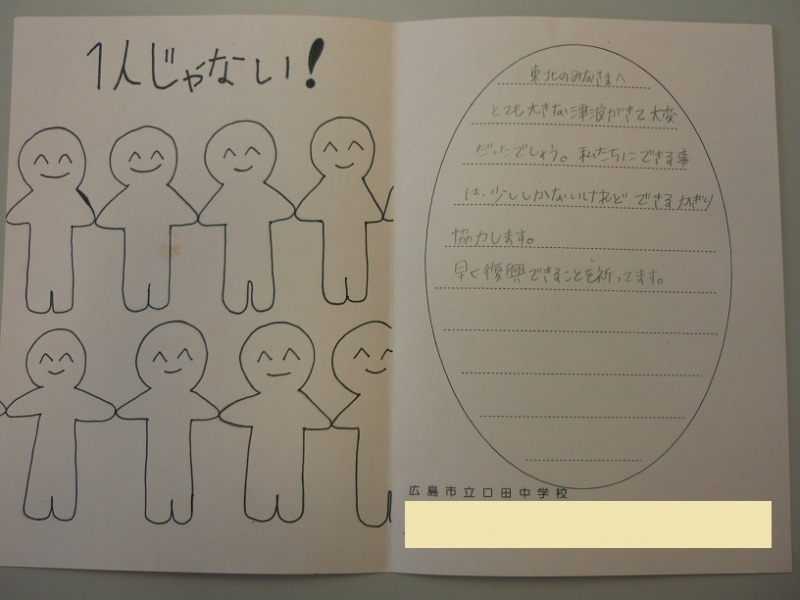 1人じゃない!
東北のみなさまへ
とても大きな津波がきて大変
だったでしょう。私たちにできる事
は、少ししかないけれど できるかぎり
協力します。
早く復興できることを祈ってます。
広島市立口田中学校